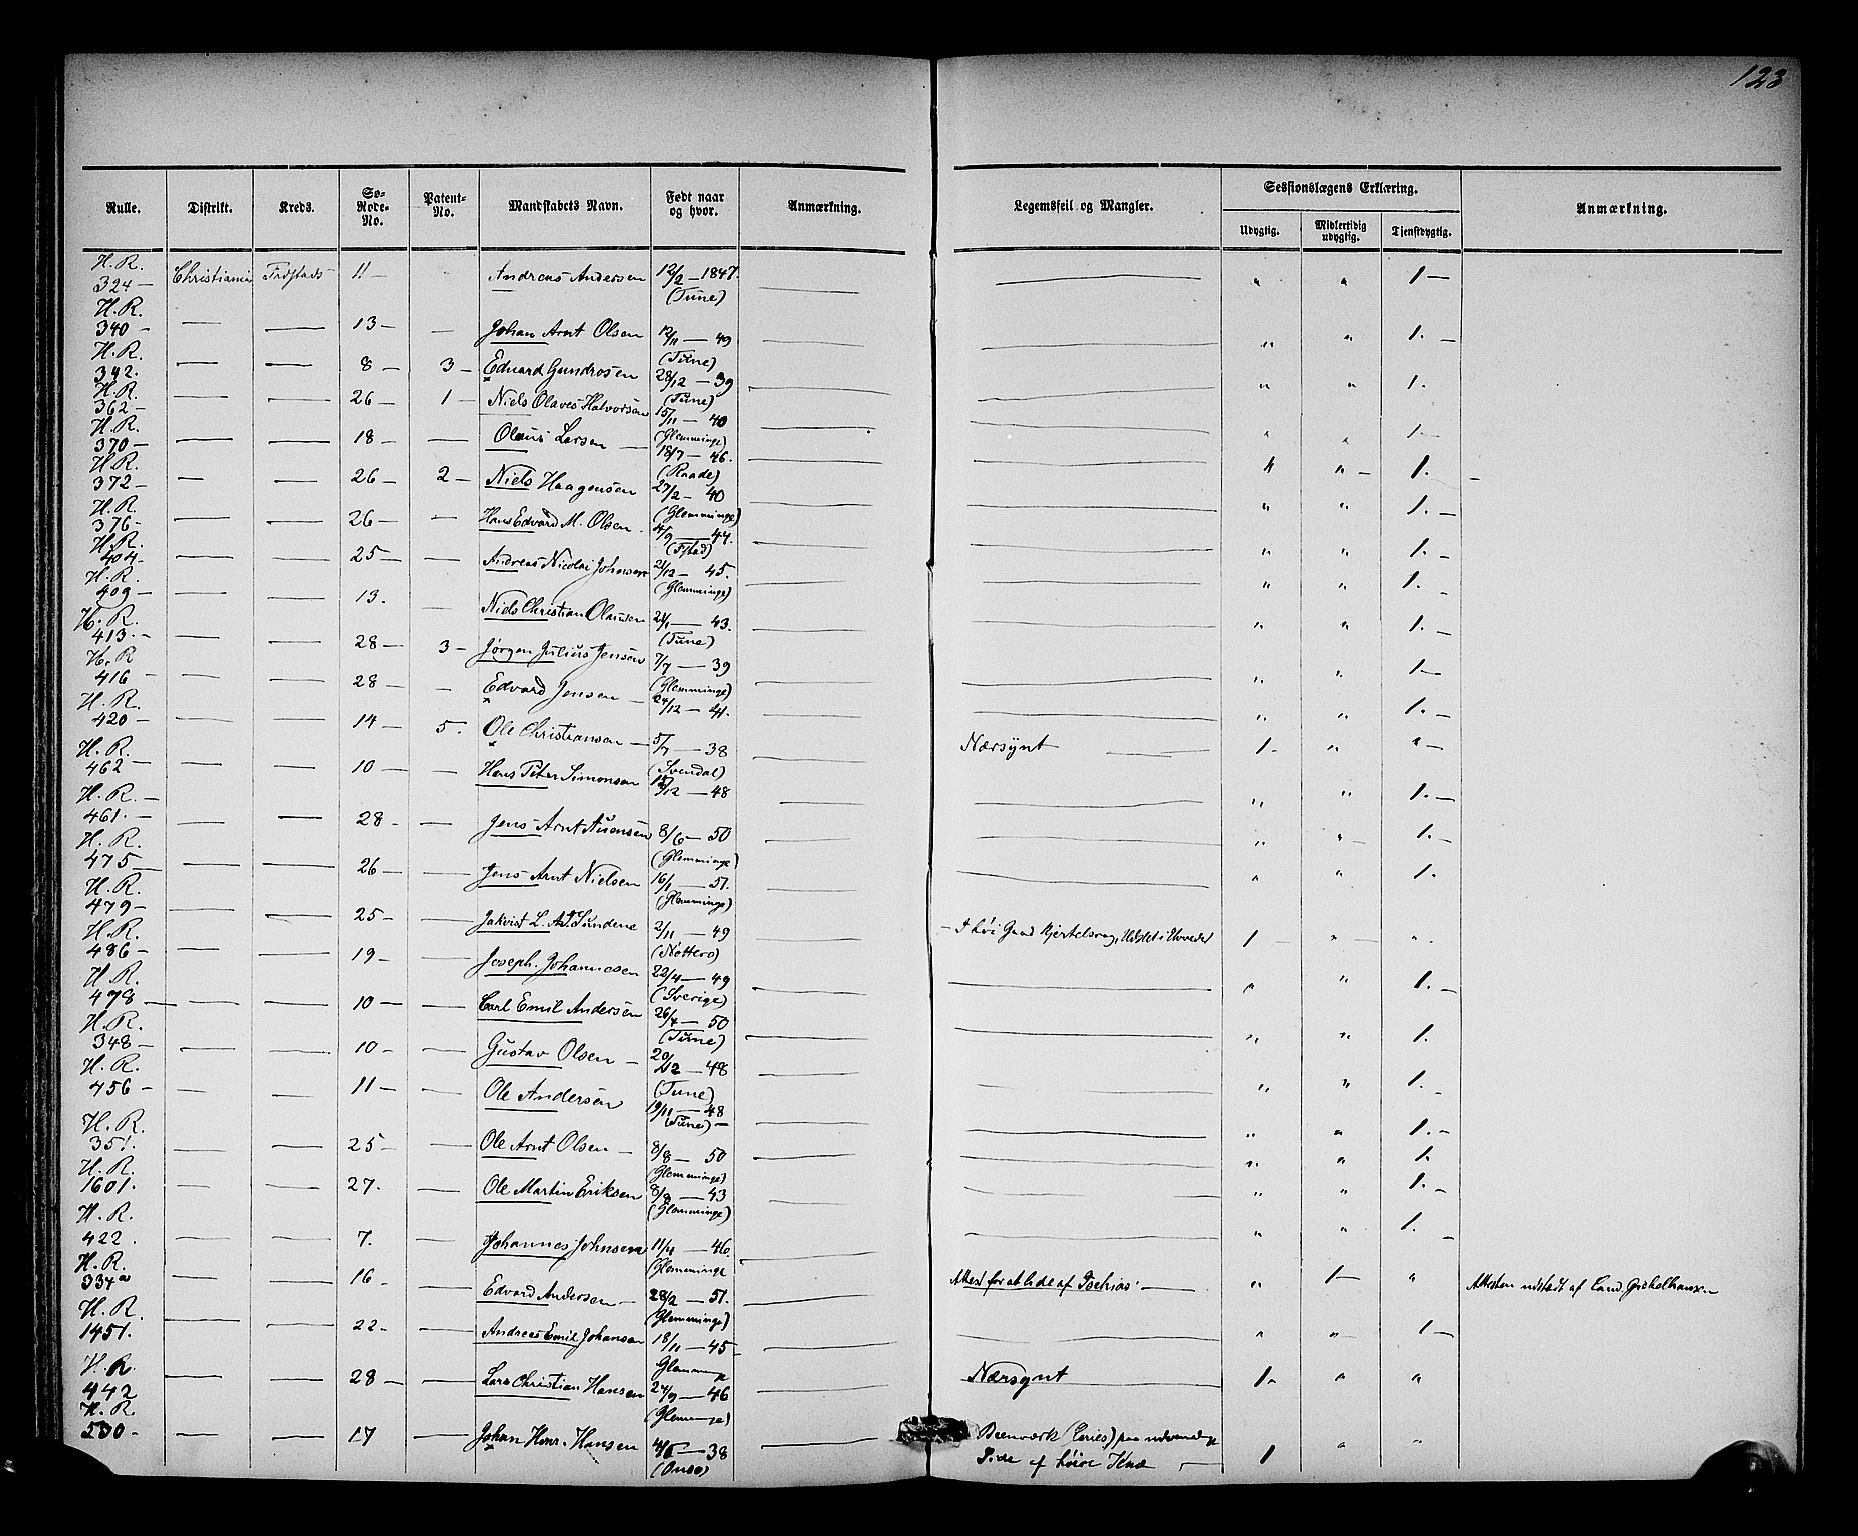 123
Rulle. Distrikt. Kreds. So-Rode-No. Patent-No. Mandskabets Navn. Født naar og hvor. Anmærkning. Legemsfeil og Mangler. Sessionslægens Erklæring. Anmærkning.
Udygtig. Midlertidig udygtig. Tjenstdygtig.
H. R. 324 — Christiania Frdstads 11 — Andreas Andersen 12/2 — 1847. (Tune) — — " " 1 —
H. R. 340 — — — 13 — — Johan Arnt Olsen 12/11 — 49 (Tune) — — " " 1. —
H. R. 342. — — 8 — 3 — Edvard Gundrosen 28/12 — 39 (Tune) — — " " 1.
H. R. 362 — — — 26 — 1 — Niels Olaves Halvorsen 15/11 — 40 (Glemminge) — — " " 1 —
H. R. 370 — — — 18 — — Olaus Larsen — 18/7 — 46. (Raade) — — " " — 1. —
H. R. 372 — — — 26 — 2 — Niels Haagensen 27/2 — 40 (Glemminge) — — " " 1. —
H. R. 376 — — — 26 — — Hans Edvard M. Olsen. 4/9 — 44. (Fstad) — — " " 1. —
H. R. 404 — — — 25 — — Andreas Nicolai Johnsen 21/12 — 45. (Glemminge) — — " " 1. —
H. R. 409 — — — 13. — Niels Christian Olausen 24/1 — 43. (Tune) — — " " 1. —
H. R. 413. — — — 28 — 3 — Jørgen Julius Jensen 7/7 — 39 (Glemminge) — — " " 1 —
H. R 416 — — — 28 — — Edvard Jensen — 24/12 — 41. — — " " 1. —
H. R. 420 — — — 14 — 5. Ole Christiansen — 5/7 — 38 (Svendal) — Nærsynt — 1 — " " —
H. R. 462 — — — 10 — — Hans Peter Simonsen 12/12 — 48 — — " " 1. —
H. R. — 461. — — — 28 — — Jens Arnt 8/6 — 50 (Glemminge) — — " " — 1. —
H. R. 475 — — — 26 — — Jens Arnt Nielsen 16/1 — 51. (Glemminge) — — " " 1.
H. R. 479 — — — 25 — — L. 2/11 — 49 (Nøttero) — 1 — " — "
H. R. 486 — — — 19 — — Joseph. Johannesen 22/4 — 49 (Sverige) — — " " 1. —
H. R. 478 — — — 10 — — Carl Emil Andersen 26/4 — 50 (Tune) — — " " 1.
H. R. 348 — — — 10 — — Gustav Olsen — 20/12 — 48 (Tune) — — " " 1. —
H. R. 456 — — — 11 — — Ole Andersen 19/11 — 48 (Tune) — — — " " 1. —
H. R. 351. — — 25 — — Ole Arnt Olsen — 8/8 — 50 (Glemminge) — — " " 1.
H. R. 1601. — — 27. — Ole Martin Eriksen 8/8 — 43 (Glemminge) — — " " 1. —
H. R. 422. — — 7. — Johannes Johnsen 11/4 — 46. (Glemminge — — " " 1. —
H. R. 334a — — 16 — — Edvard Andersen — 28/2 — 51. (Glemminge) — Attest for at lide af — " 1 — " Attesten udstedt af Cand.
H. R. 1451. — — 22 — — Andreas Emil Johansen 18/11 — 45 — — — " " — 1 —
H. R. 442 — — 28 — — Lars Christian Hansen 24/9 — 46 (Glemminge) — Nærsynt — 1 — " "
H. R. 530 — — — 17 — Johan Henr. Hansen 4/6 — 38 (Onsø) — (Caries) paa udvendige " "
Side af høire Knæ — 1